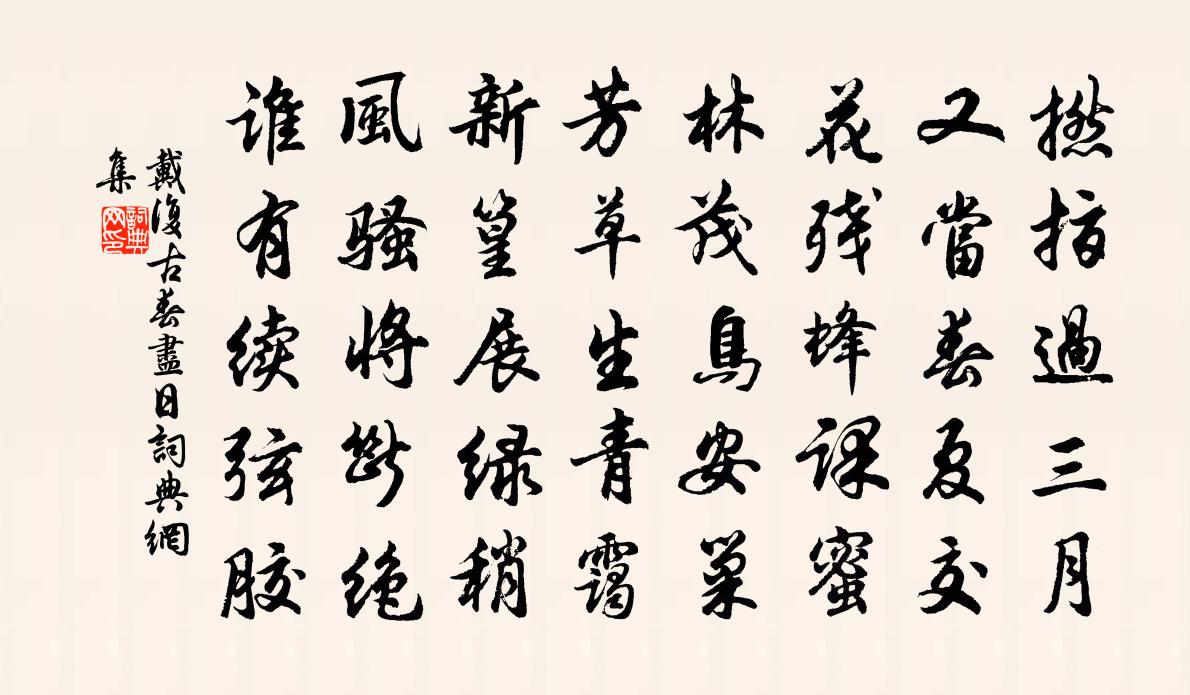 撚指過三月
又當春夏交
花残蜂課蜜
林茂鳥安巢
芳草生青靄
新篁展緑稍
風騷將斷絶
谁有续弦胶
戴復古春盡日詞典網
集
詞典
网印